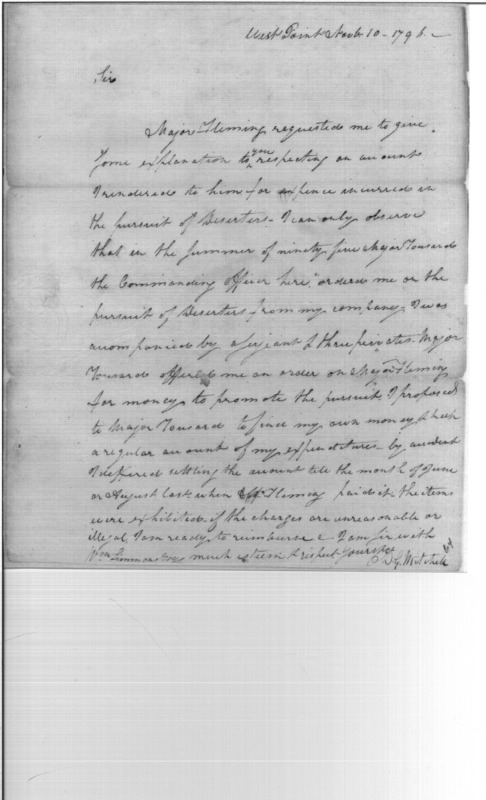 West Point Novb 10 - 1796 -
Sir
Major Fleming requested me to give
Some explanation to you respecting an account
I rendered to him for expence incurred in
the pursuit of Deserters - I can only observe
that in the Summer of ninety five Major Tousard
the Commanding officer here, ordered me on the
pursuit of Deserters from my company, I was
accompanied by a Serjeant & three privates. Major
Tousard offered me an order on Major Fleming
for money to promote the pursuit, I proposed
to Major Tousard to find my own money & keep
a regular account of my expenditures - by accident
I defered settling the account till the month of June
or August last when Fleming paid it the items
were exhibited. if the charges are unreasonable or
illegal I am ready to reimburse - I am Sir with
much esteem & respect yours
Wm Simmons Esqr
S G. Mitchell